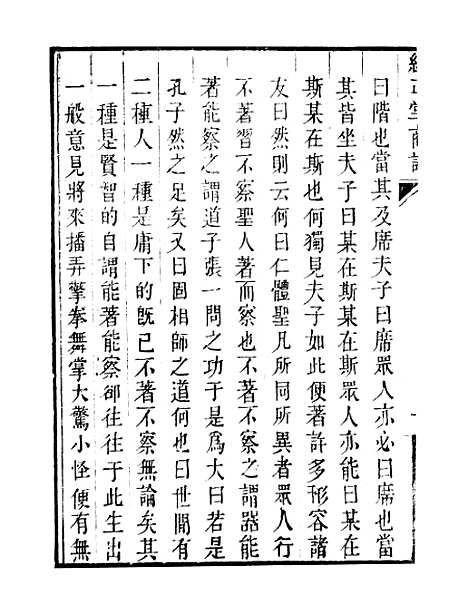 經正堂商語
曰階也當其及席夫子曰席眾人亦必曰席也當
其皆坐夫子曰某在斯某在斯眾人亦能曰某在
斯某在斯也何獨見夫子如此便著許多形容諸
友曰然則云何曰仁體聖凡所同所異者眾人行
不著習不察聖人著而察也不著不察之謂器能
著能察之謂道子張一問之功于是爲大曰若是
孔子然之足矣又曰固相師之道何也曰世間有
二種人一種是庸下的旣已不著不察無論矣其
一種是賢智的自謂能著能察卻往往于此生出
一般意見將來播弄擎拳舞掌大驚小怪便有無